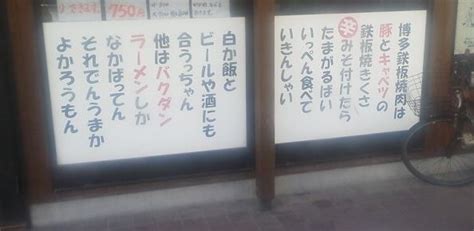 博多鉄板焼肉は
豚とキャベツの
鉄板焼きくさ
辛みそ付けたら
たまがるばい
いっぺん食べて
いきんしゃい
白か飯と
ビールや酒にも
合うっちゃん
他はバクダン
ラーメンしか
なかばってん
それでんうまか
よかろうもん
できます。
750円